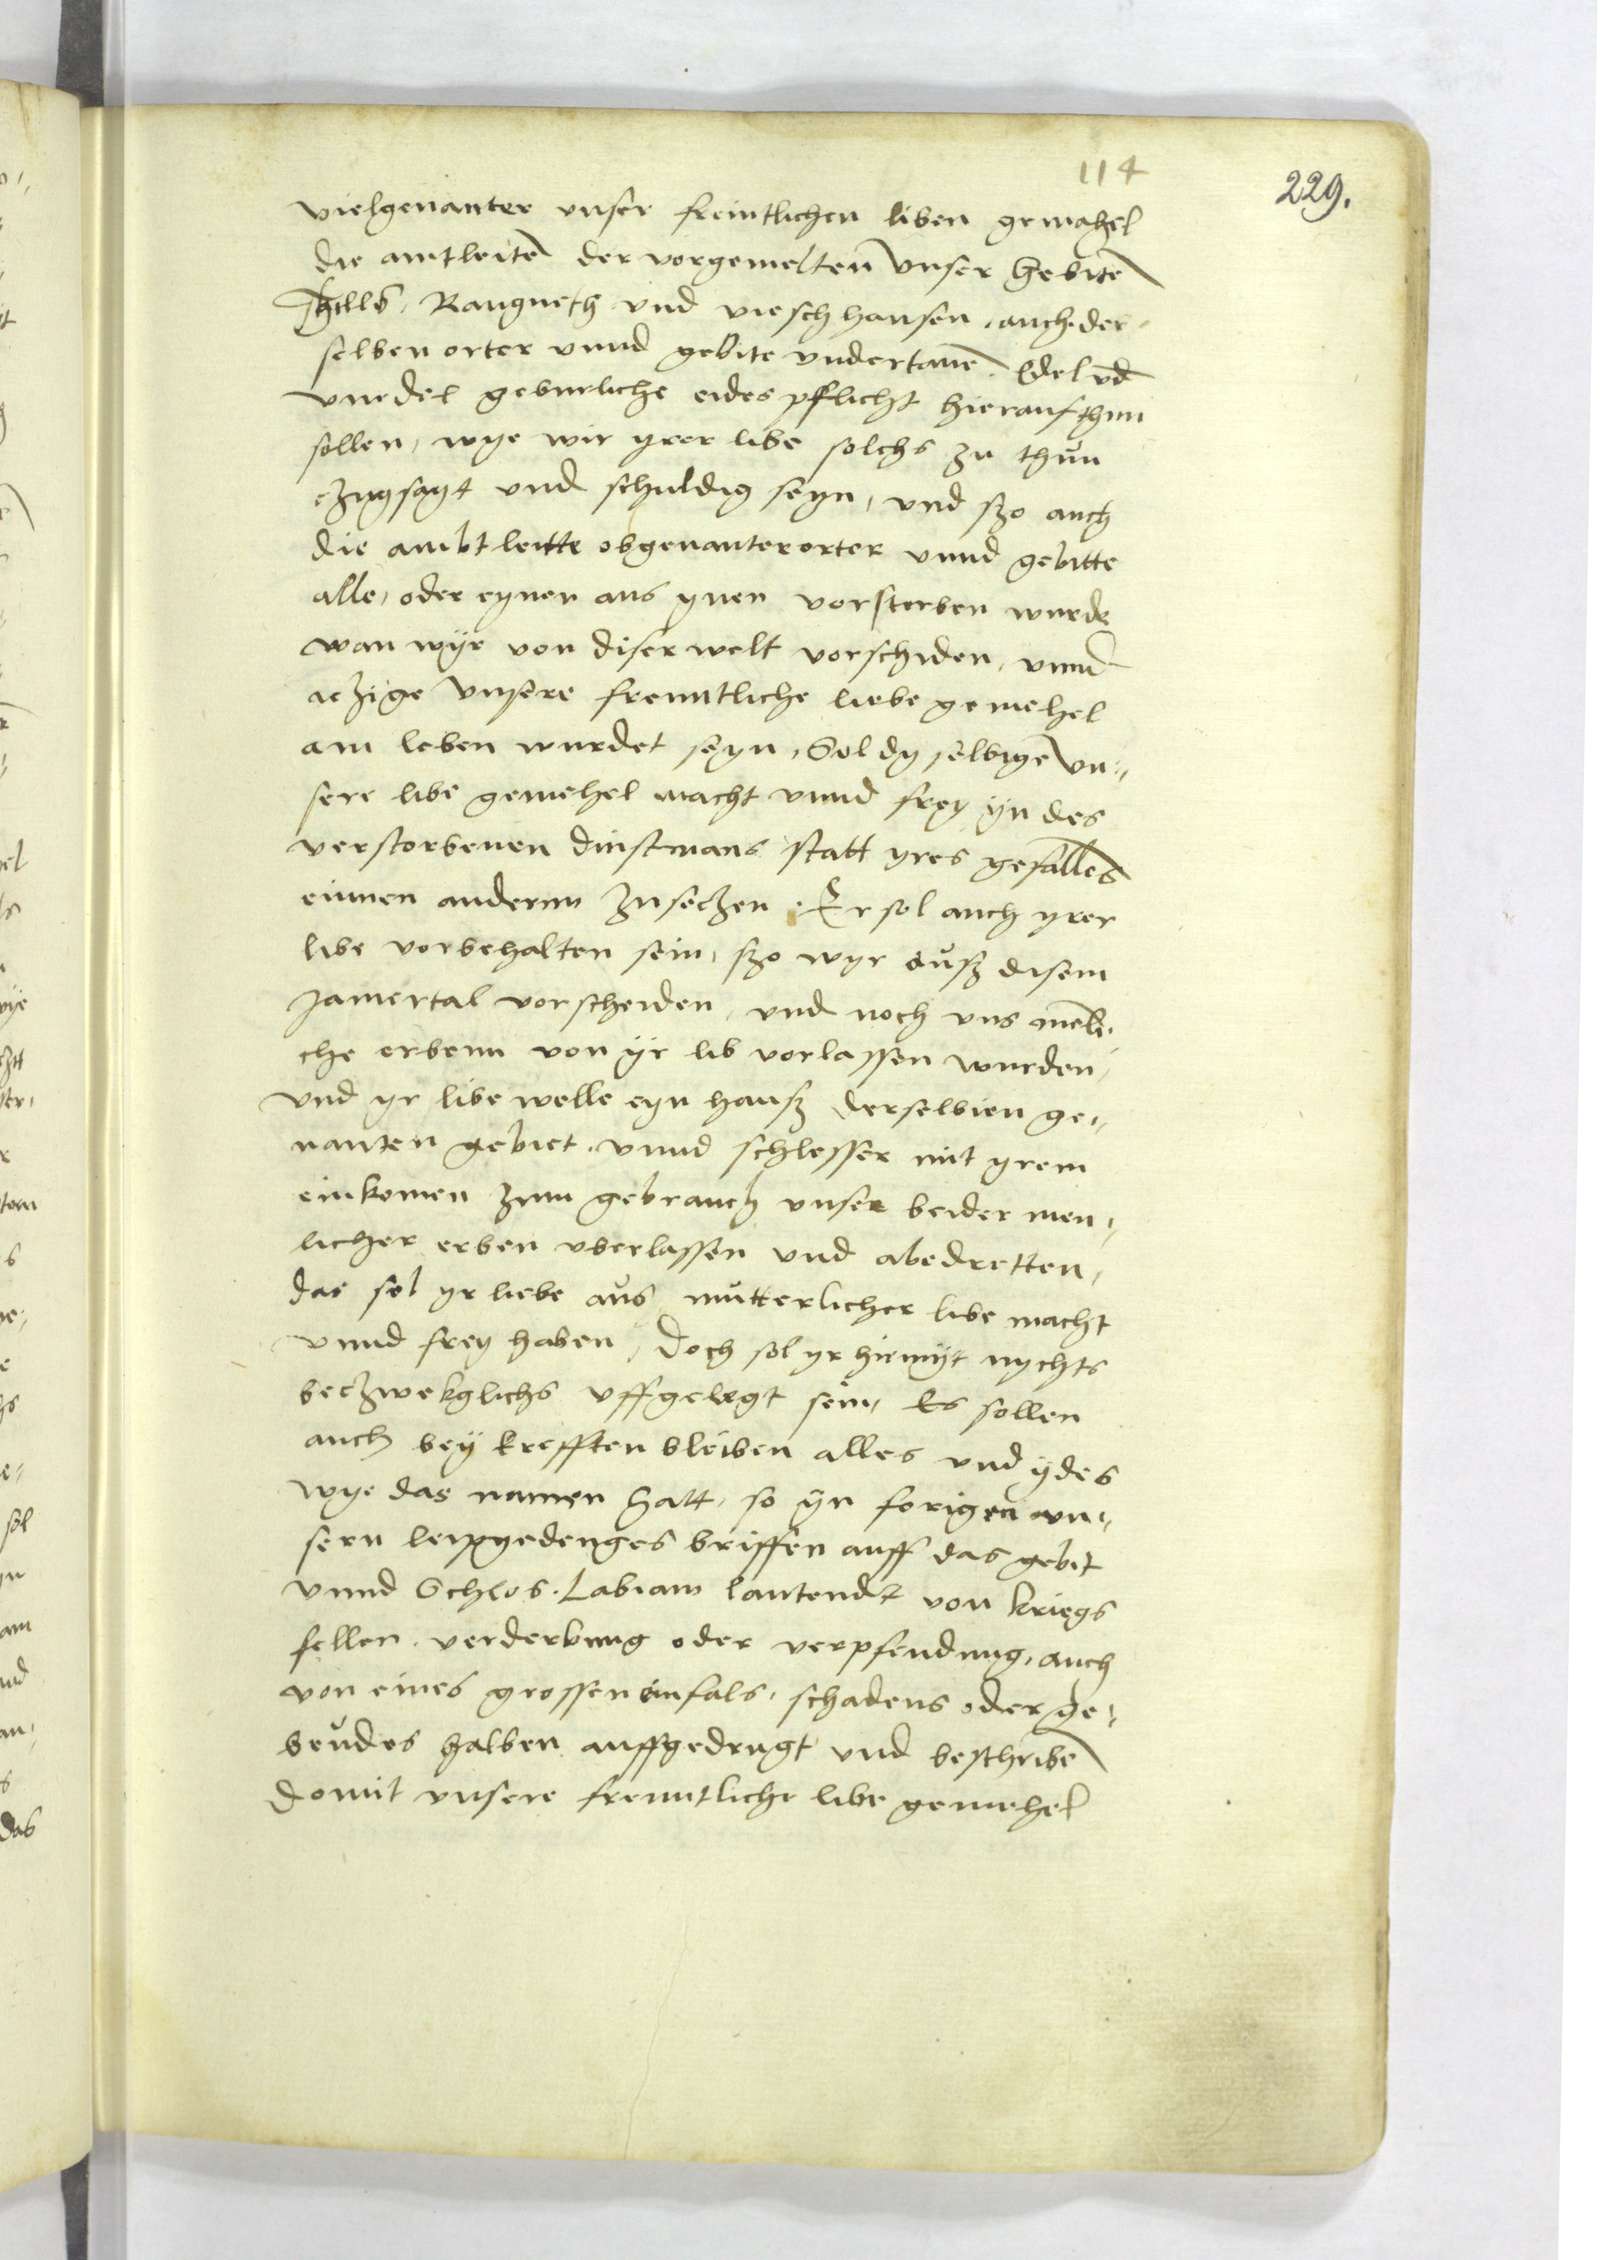 114
229.
vielgenanter unser freintlichen liben gemahel
die amtleite der vorgemelten unser Gebite
Rangneth und vieschhausen, auch der¬
selben orter unnd gebite undertane Edel und
unedel geburliche eides pflicht hierauf thun
sollen, wye wir yrer libe solchs zu thun
czugsagt und schuldig seyn, und szo auch
die ambtleitte obgenanter orter unnd gebitte
alle, oder eyner aus ynen vorstorben wurde
wan wyr von diser welt vorschiden, unnd
iczige unsere freuntliche liebe gemehel
am leben wurdet seyn, Sol dy selbige un¬
sere libe gemehel macht unnd frey yn des
verstorbenen dinstmans statt yres gefalles
einnen andernn zu seczen. Er sol auch yrer
libe vorbehalten sein, szo wyr ausz disem
jamertal vorscheiden, und noch uns menli¬
che erbenn von yr lib vorlassen wurden,
und yr libe welle eyn hausz derselbien ge¬
nanten gebiet unnd schlesser mit yrem
einkomen zum gebrauch unser beider men¬
licher erben uberlassen und abedretten,
das sol yr liebe aus mutterlicher libe macht
unnd frey haben, Doch sol yr hiemyt nychts
beczwekglichs uffgelegt sein, Es sollen
auch bey krefften bleiben alles und ydes
wye das namen hatt, so yn forigen un¬
sern leipgedenges briffen auff das gebit
unnd Schlos Labiaw lautendt von kriegs
fellen verderbung oder verpfendung, auch
von eines grossen einfals, schadens oder ge¬
beudes halben auffgedrugt und beschribe
domit unsere freuntliche libe gemehel